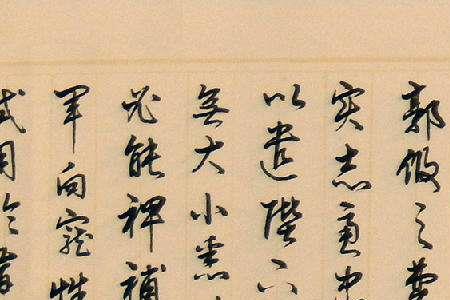 郭攸之費
实志慮忠
以遺陛下
無大小悉
必能裨補
軍向寵性
試用於